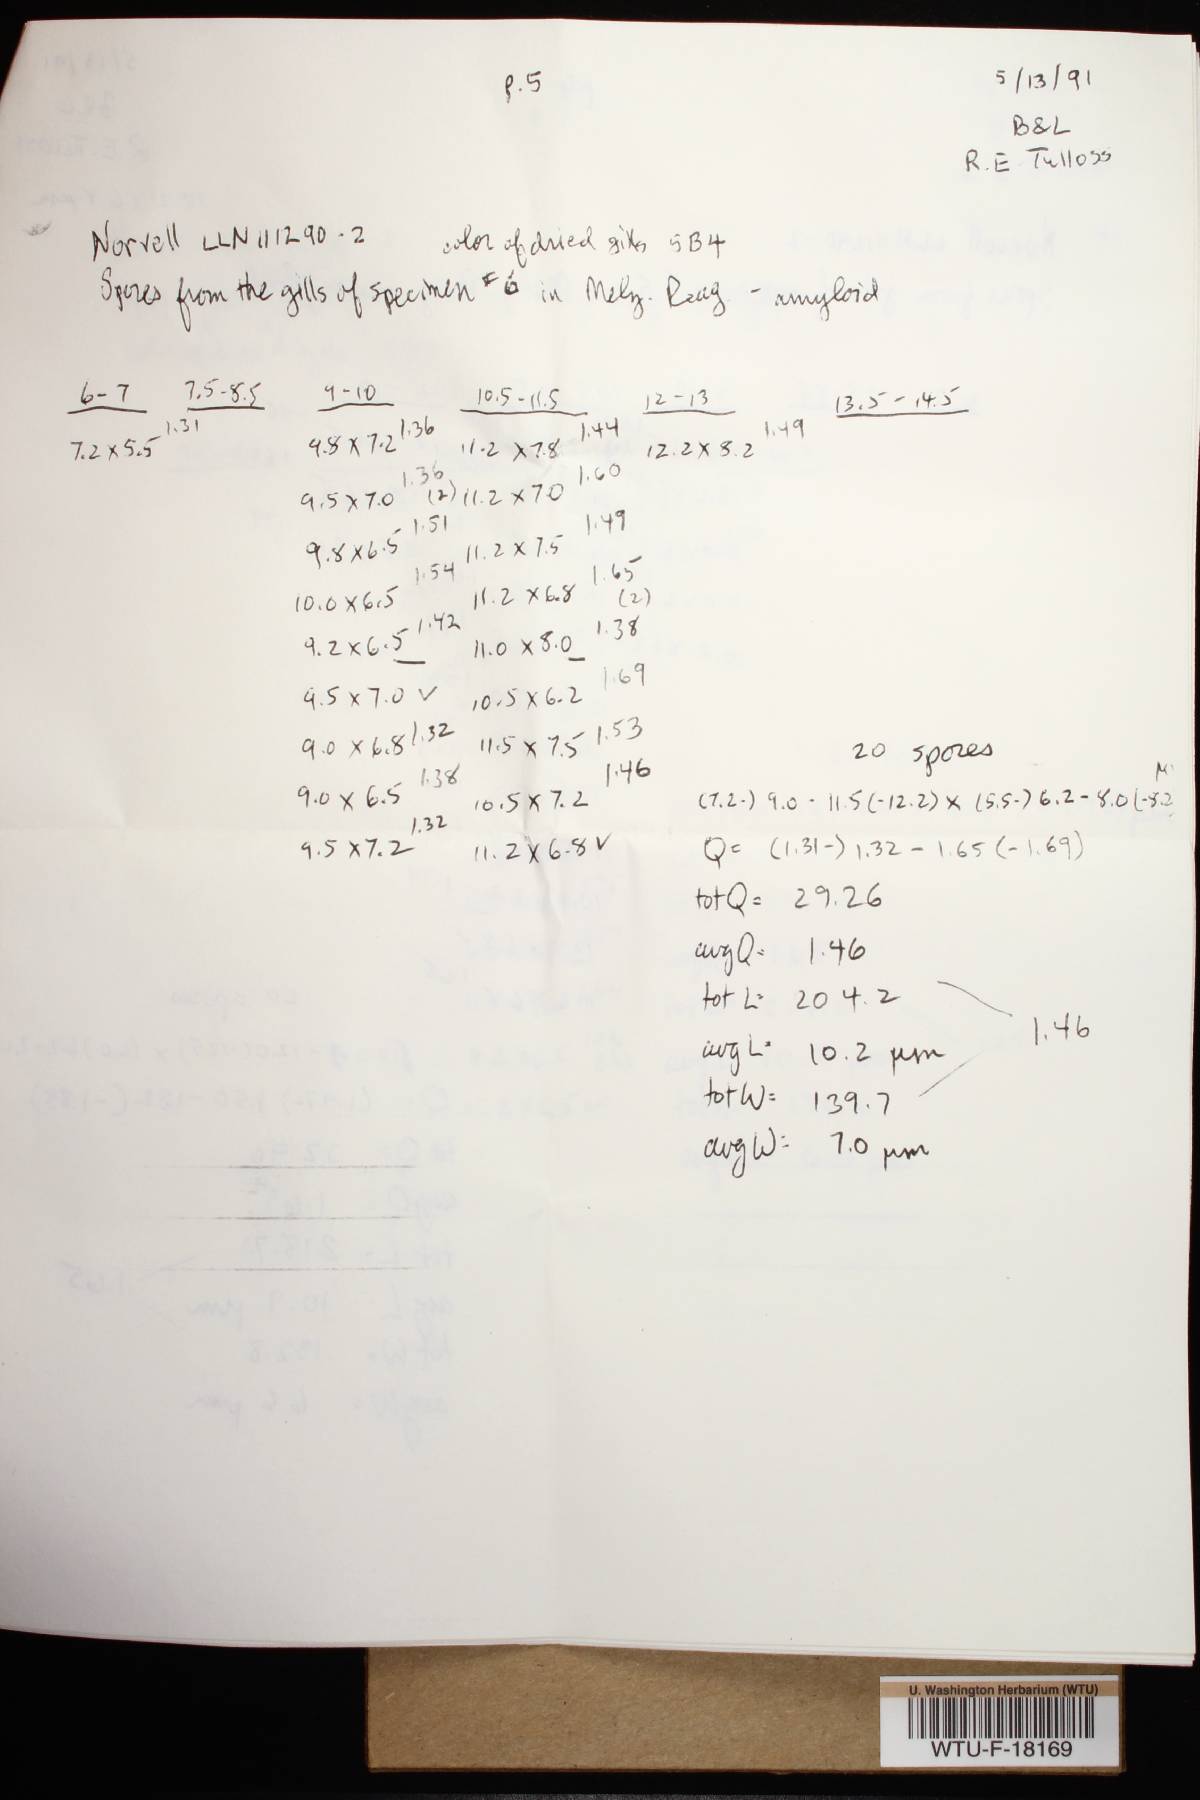 p.5
5/13/91
B&L
R.E. Tulloss
Norvell LLN111290-2 color of dried gills 5B4
Spores from the gills of specimen #6 in Melz. Reag. - amyloid
6-7 7.5-8.5 9-10 10.5-11.5 12-13 13.5-14.5
7.2 x 5.5 1.31 9.8 x 7.2 1.36 11.2 x 7.8 1.44 12.2 x 8.2 1.49
9.5 x 7.0 1.36 (2) 11.2 x 7.0 1.60
9.8 x 6.5 1.51 11.2 x 7.5 1.49
10.0 x 6.5 1.54 11.2 x 6.8 1.65 (2)
9.2 x 6.5 1.42 11.0 x 8.0 1.38
9.5 x 7.0 ✓ 10.5 x 6.2 1.69
9.0 x 6.8 1.32 11.5 x 7.5 1.53
9.0 x 6.5 1.38 10.5 x 7.2 1.46
9.5 x 7.2 1.32 11.2 x 6.8 ✓
20 spores
(7.2-) 9.0 - 11.5 (-12.2) x (5.5-) 6.2 - 8.0 (-8.2
Q = (1.31-) 1.32 - 1.65 (-1.69)
tot Q = 29.26
avg Q = 1.46
tot L = 204.2
1.46
avg L = 10.2 µm
tot W = 139.7
avg W = 7.0 µm
U. Washington Herbarium (WTU)
WTU-F-18169